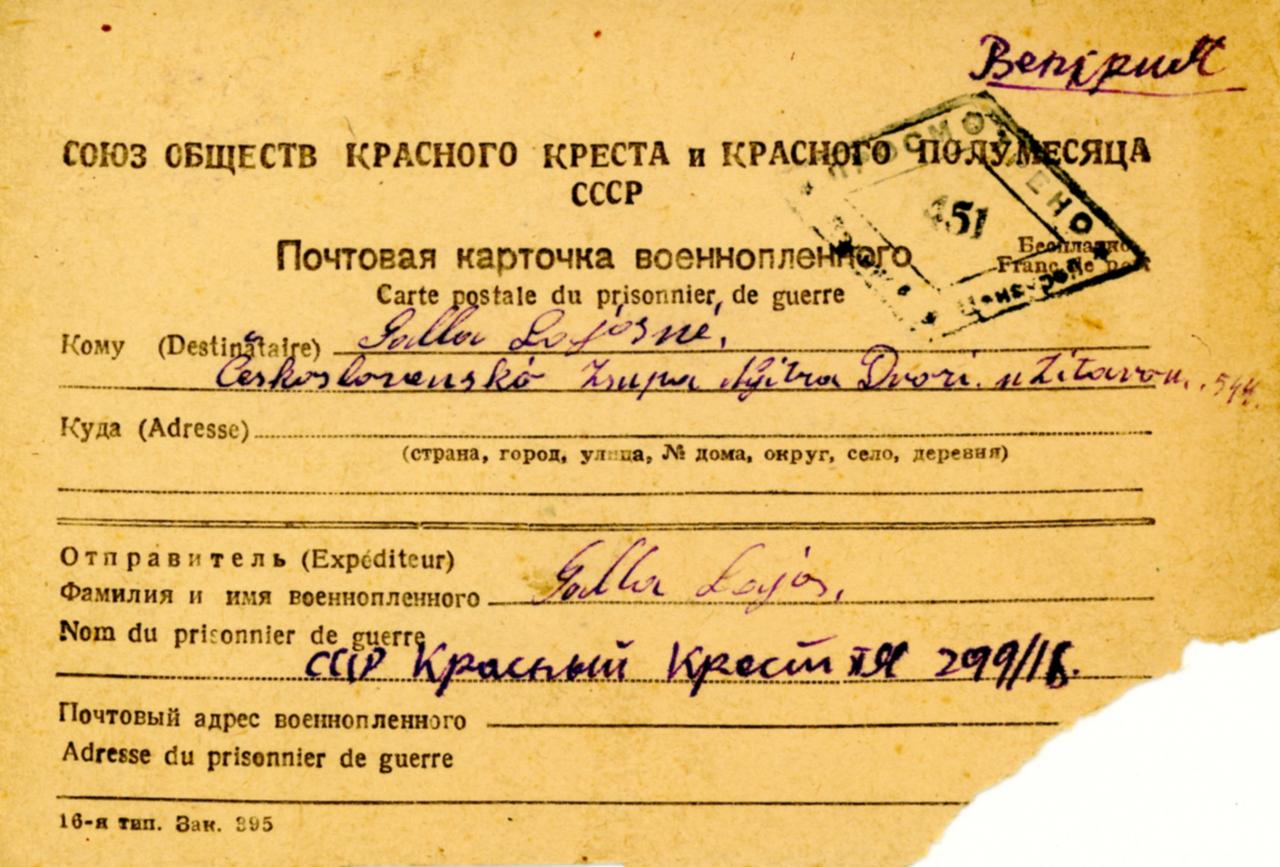 Венгрия
СОЮЗ ОБЩЕСТВ КРАСНОГО КРЕСТА и КРАСНОГО ПОЛУМЕСЯЦА
СССР
ПРОСМОТРЕНО
451
Почтовая карточка военнопленного
Бесплатно
Franc de port
Carte postale du prisonnier de guerre
Кому (Destinataire) Galla Lajosné,
Československó Zsupa Nyitra Dvori. n Žitavou. 544.
Куда (Adresse)
(страна, город, улица, № дома, округ, село, деревня)
Отправитель (Expéditeur)
Фамилия и имя военнопленного Galla Lajos,
Nom du prisonnier de guerre
СССР Красный Крест П/Я 299/18.
Почтовый адрес военнопленного
Adresse du prisonnier de guerre
16-я тип. Зак. 395